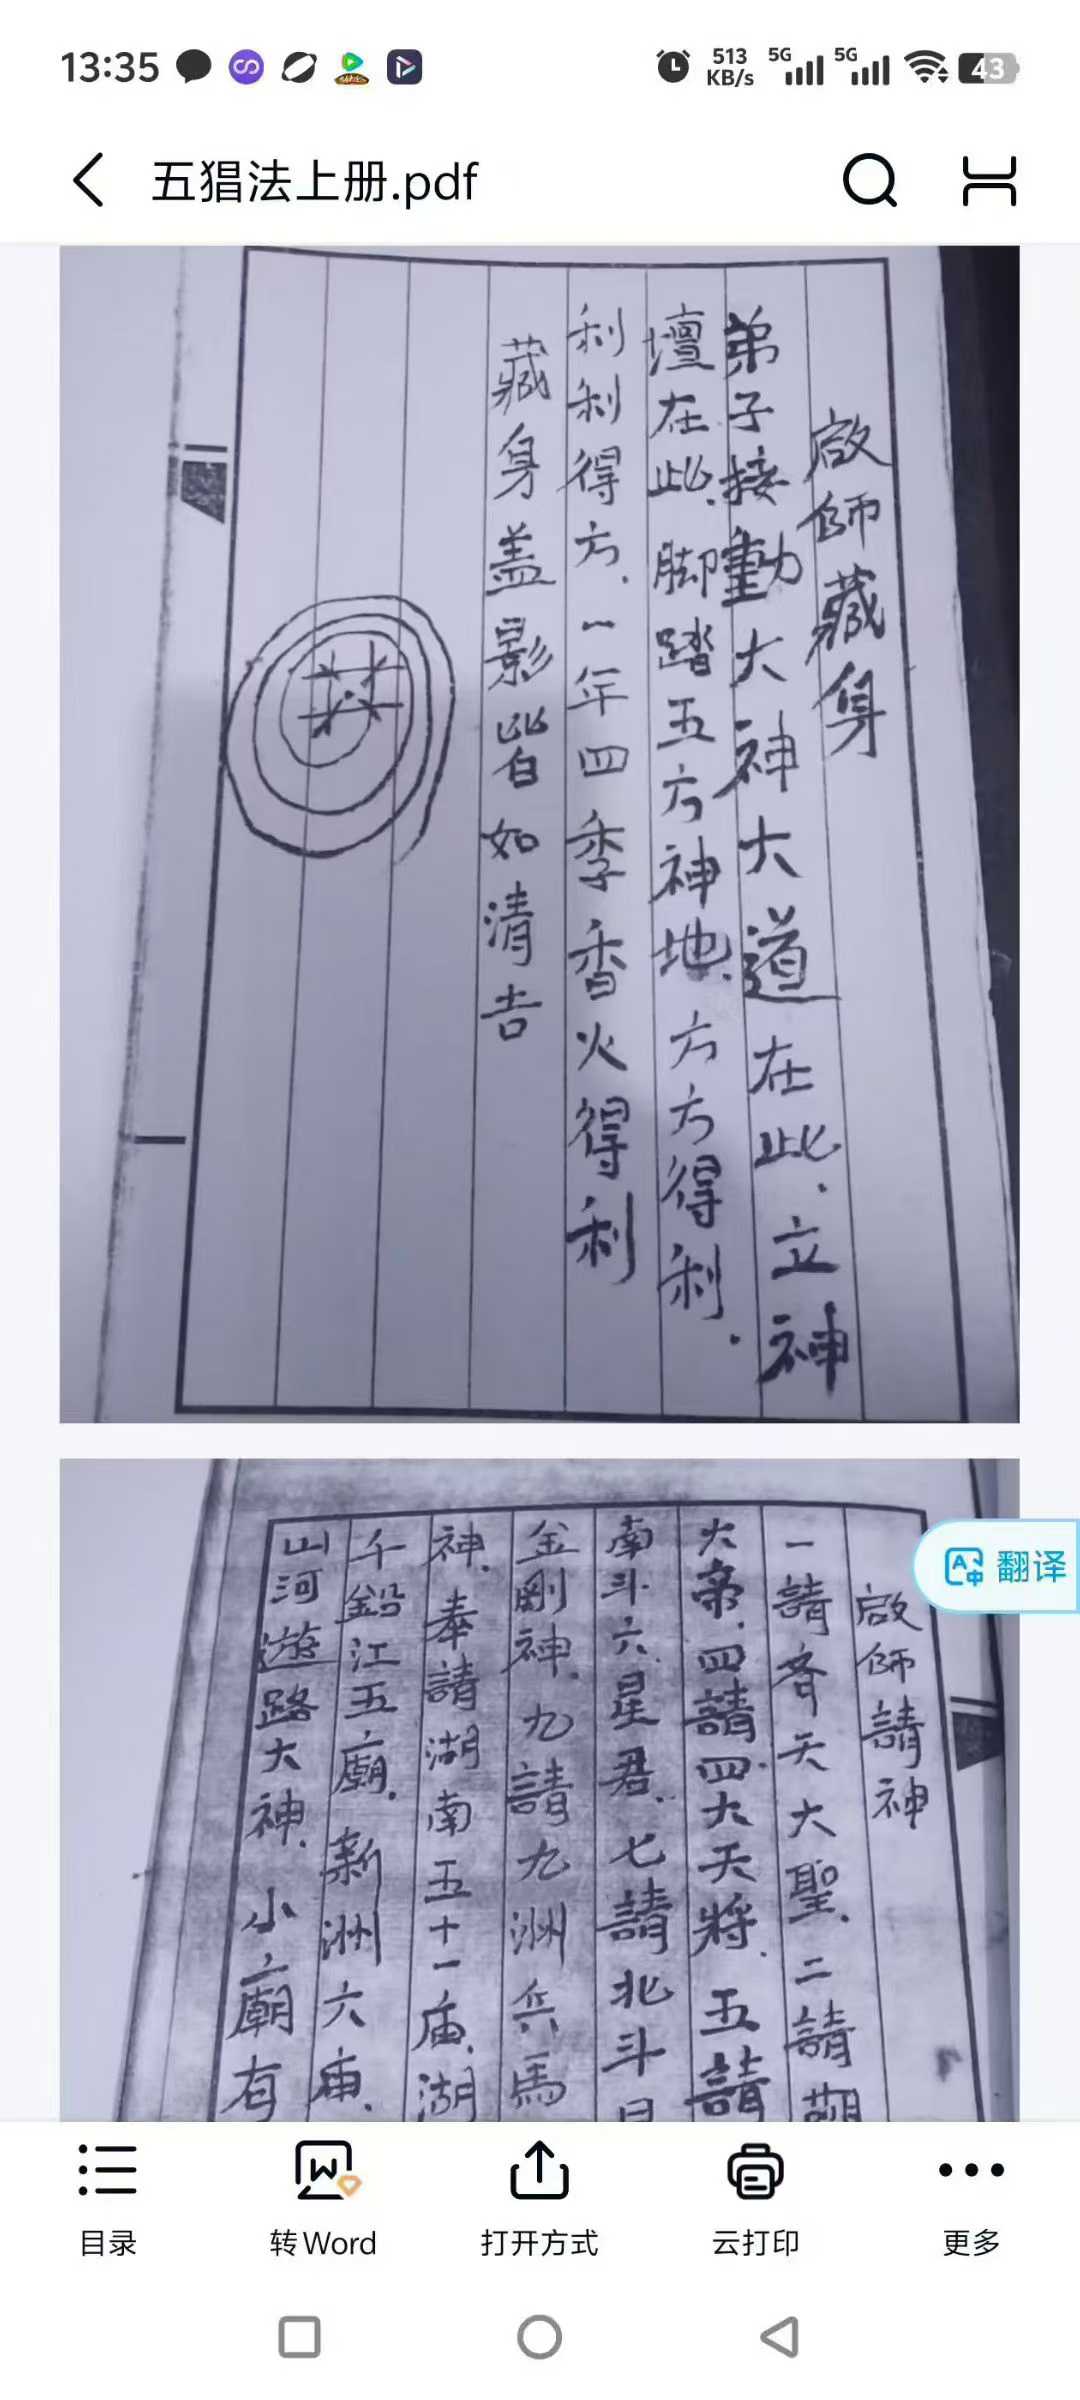 13:35
513 KB/s
5G
5G
43
五猖法上册.pdf
啟師藏身
弟子接動大神大道在此.立神
壇在此.脚踏五方神地.方方得利.
利利得方.一年四季香火得利
藏身盖影皆如清告
井
啟師請神
一請齊天大聖.二請觀
火帝.四請四大天將.五請
南斗六星君.七請北斗
金剛神.九請九洲兵馬
神.奉請湖南五十一庙.湖
千鉛江五廟.新洲六庙.
山河遊路大神.小廟有
翻译
目录
转Word
打开方式
云打印
更多